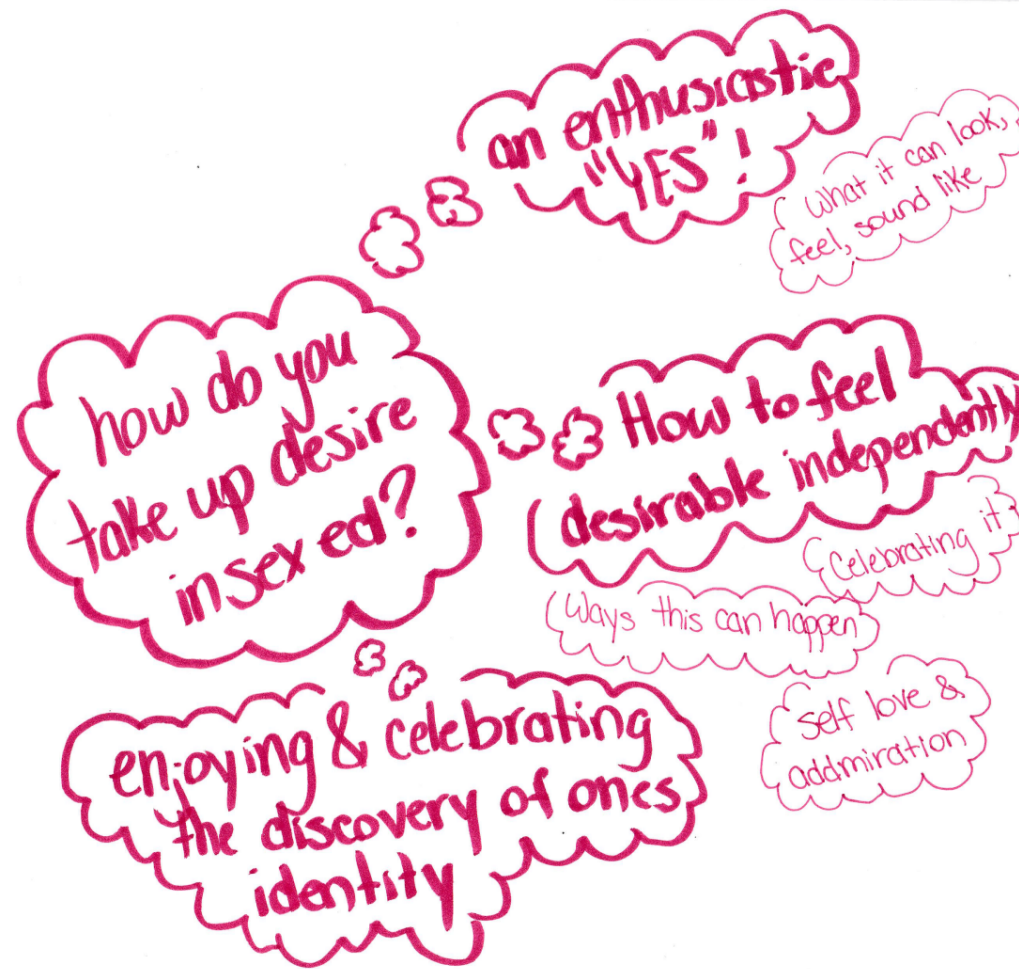 how do you
take up desire
in sex ed?
an enthusiastic
"YES"!
What it can look,
feel, sound like
How to feel
desirable independently
Celebrating it
Ways this can happen
self love &
addmiration
enjoying & celebrating
the discovery of ones
identity